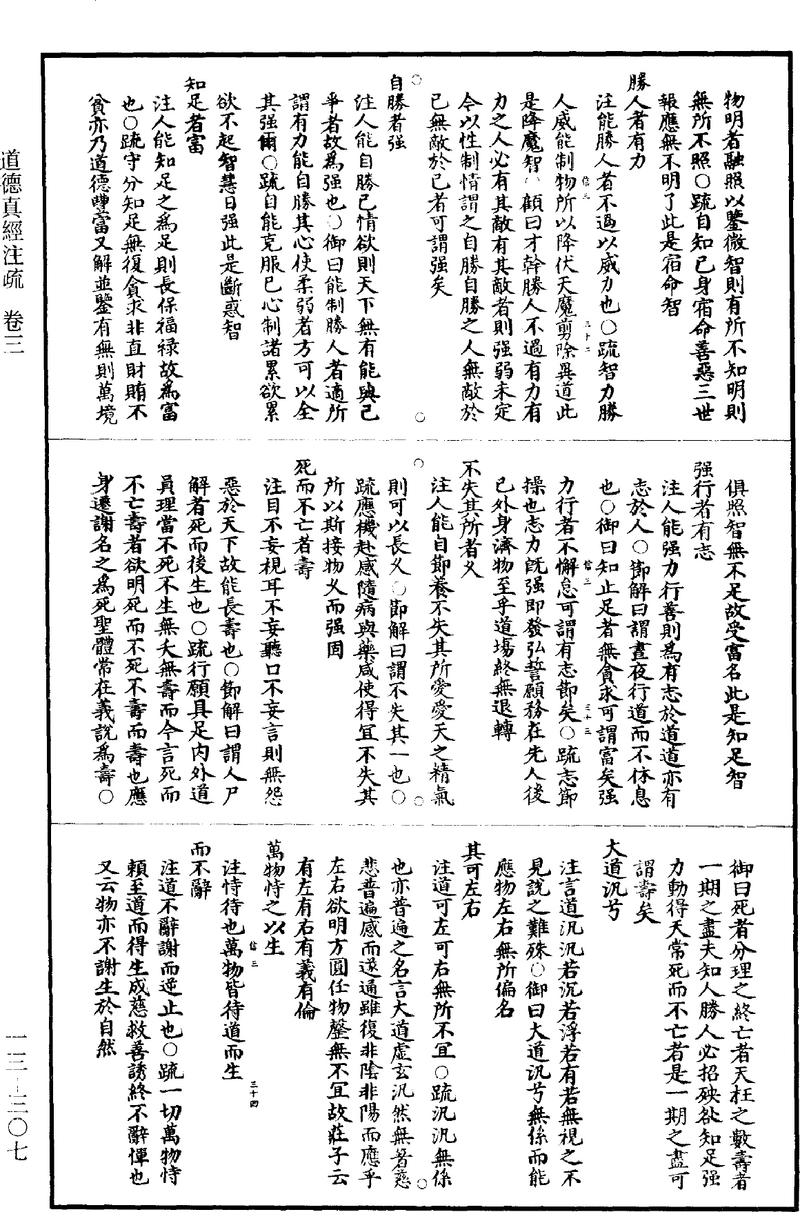 道德真經注疏　卷三
物明者融照以鑒微智則有所不知明則
無所不照○疏自知己身宿命善惡三世
報應無不明了此是宿命智
勝人者有力
注能勝人者不過以威力也○疏智力勝
人威能制物所以降伏天魔剪除異道此
是降魔智○顧曰才幹勝人不過有力有
力之人必有其敵有其敵者則强弱未定
令以性制情謂之自勝自勝之人無敵於
已無敵於已者可謂强矣
自勝者强
注人能自勝已情欲則天下無有能與己
爭者故為强也○御曰能制勝人者適所
謂有力能自勝其心使柔弱者方可以全
其强爾○疏自能克服已心制諸累欲累
欲不起智慧日强此是斷惑智
知足者富
注人能知足之為足則長保福禄故為富
也○疏守分知足無復貪求非直財賄不
貪亦乃道德豐富又解並鑒有無則萬境
俱照智無不足故受富名此是知足智
强行者有志
注人能强力行善則為有志於道道亦有
志於人○節解曰謂晝夜行道而不休息
也○御曰知止足者無貪求可謂富矣强
力行者不懈怠可謂有志節矣○疏志節
操也志力旣强即發弘誓願務在先人後
已外身濟物至乎道場終無退轉
不失其所者乆
注人能自節養不失其所愛愛天之精氣
則可以長乆○節解曰謂不失其一也○
疏應機赴感隨病與藥咸使得宜不失其
所以斯接物乆而强固
死而不亡者壽
注目不妄視耳不妄聽口不妄言則無怨
惡於天下故能長壽也○節解曰謂人尸
解者死而後生也○疏行願具足内外道
員理當不死不生無夭無壽而今言死而
不亡壽者欲明死而不死不壽而壽也應
身遷謝名之為死聖體常在義説為壽○
御曰死者分理之終亡者夭枉之數壽者
一期之盡夫知人勝人必招殃欲知足强
力動得天常死而不亡者是一期之盡可
謂壽矣
大道汎兮
注言道汎汎若沉若浮若有若無視之不
見説之難殊○御曰大道汎兮無係而能
應物左右無所偏名
其可左右
注道可左可右無所不宜○疏汎汎無係
也亦普遍之名言大道虛玄汎然無著慈
悲普遍感而遂通雖復非陰非陽而應乎
左右欲明方圓任物罄無不宜故莊子云
有左有右有義有倫
萬物恃之以生
注恃待也萬物皆待道而生
而不辭
注道不辭謝而逆止也○疏一切萬物恃
賴至道而得生成慈救善誘終不辭憚也
又云物亦不謝生於自然
一三—三〇七